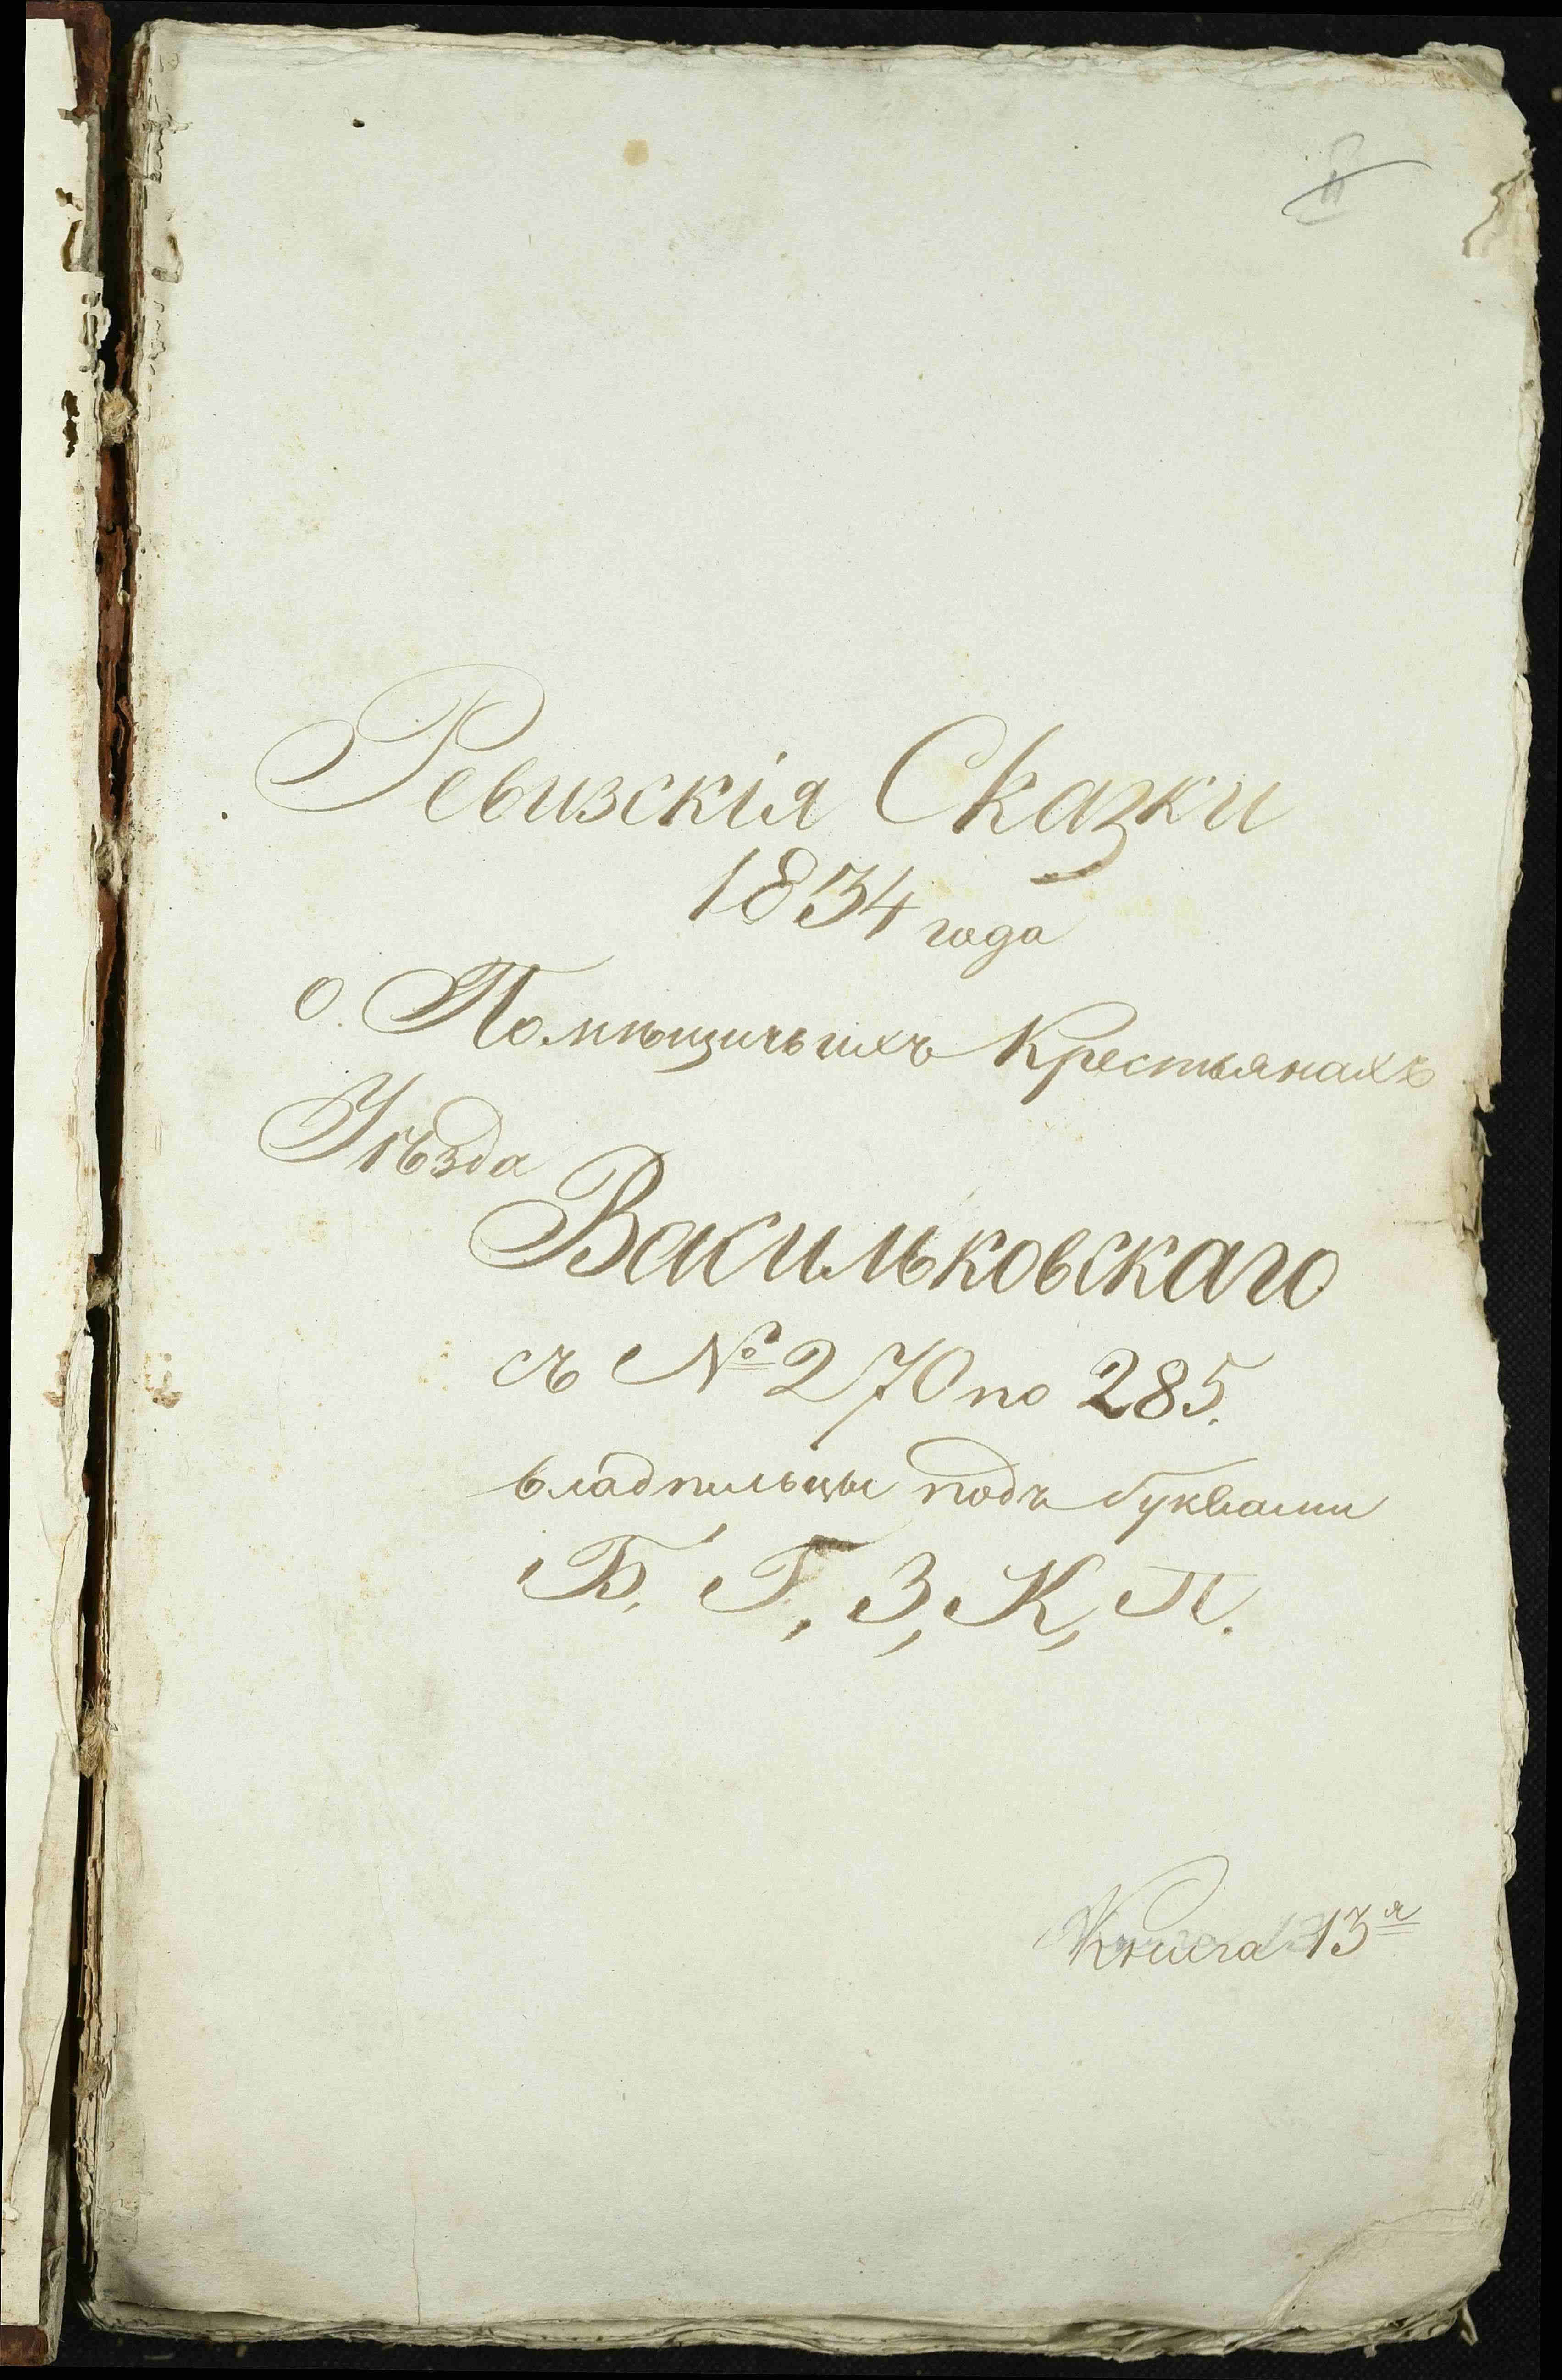 Ревизскія Сказки
1834 года
о Помѣщичьихъ Крестьянахъ
Уѣзда
Васильковскаго
съ № 270 по 285.
владѣльцы подъ буквами
Б, Г, З, К, П.
Книга 13я